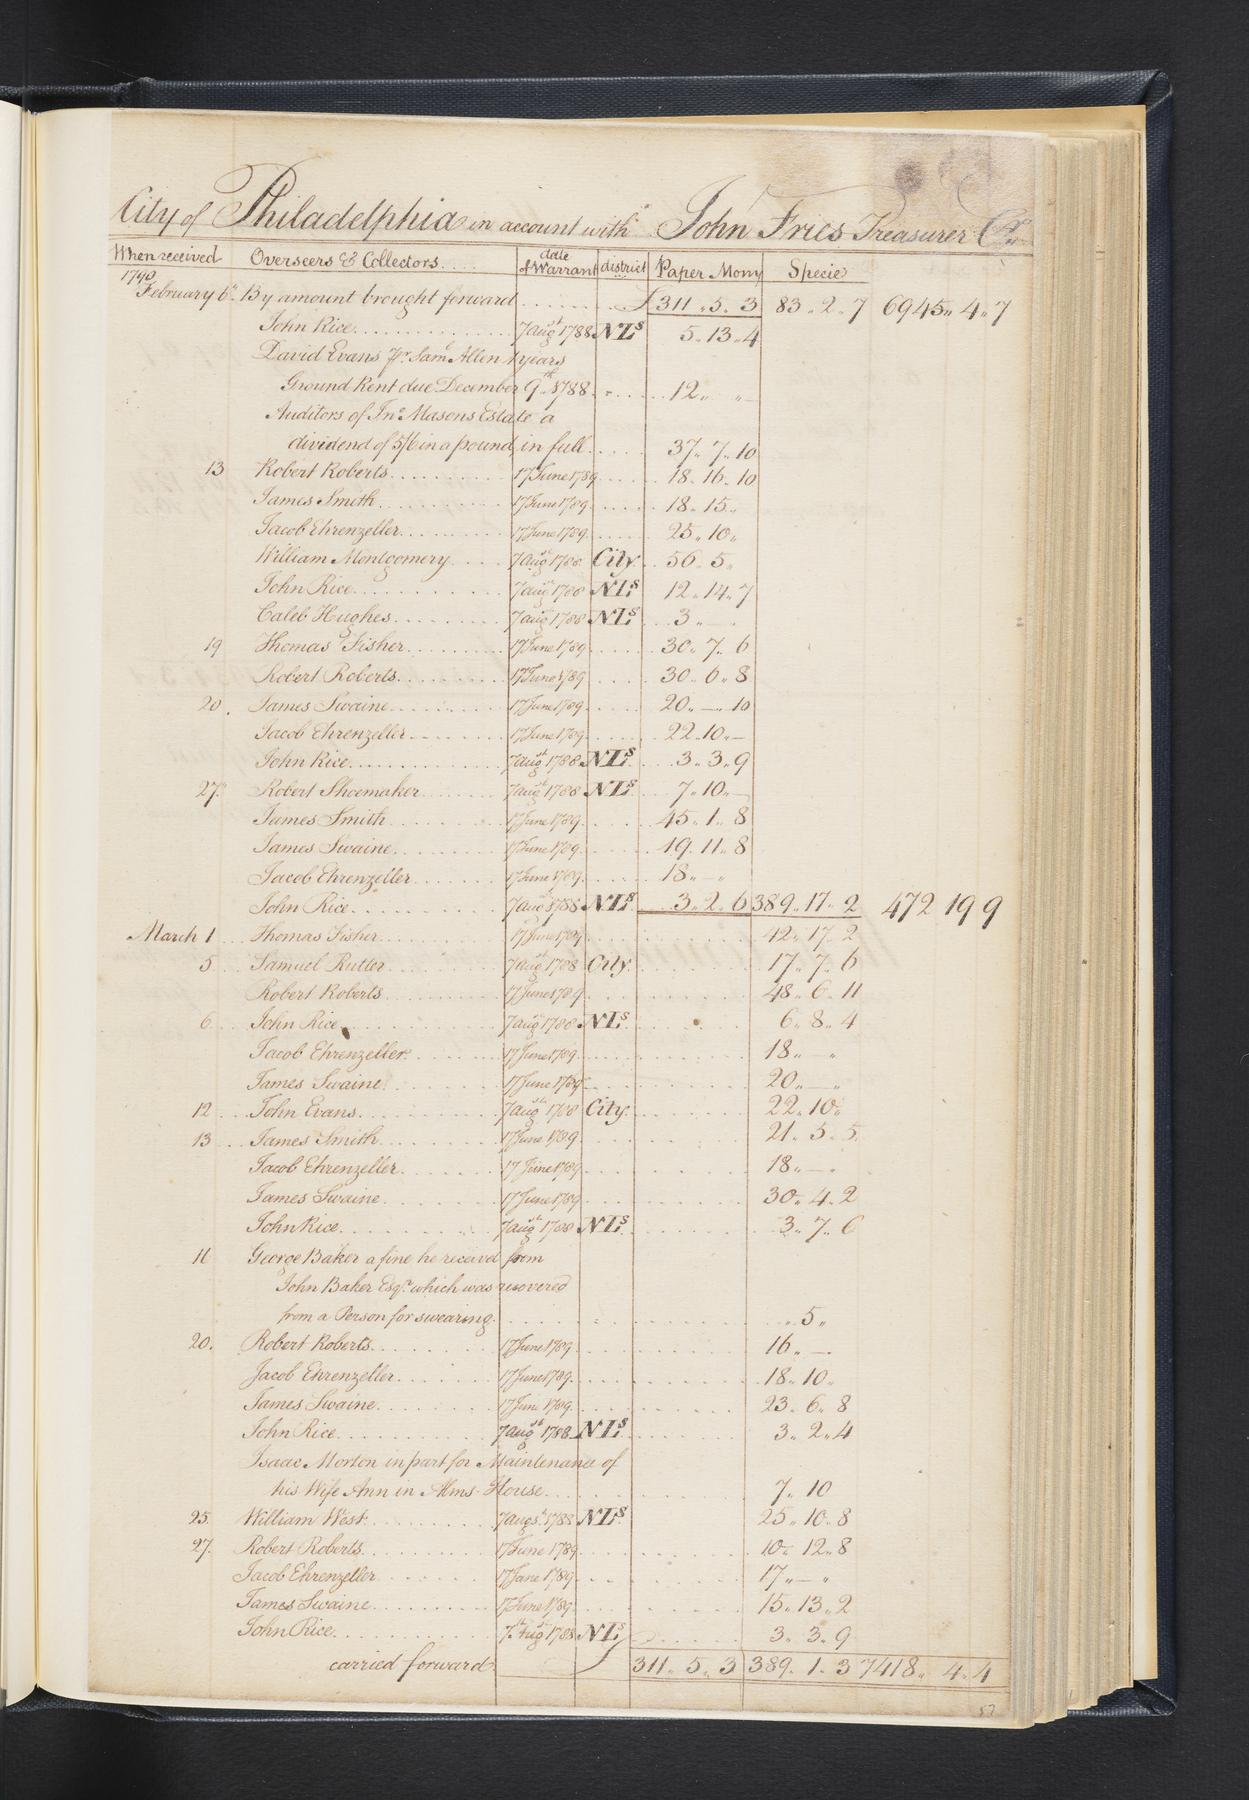 City of Philadelphia in account with John Fries Treasurer Cr.
When received Overseers & Collectors.... date of Warrant district Paper Mony Specie
1790
February 6th. By amount brought forward ........ £311.. 5.. 3 83.. 2.. 7 6945.. 4.. 7
John Rice............ 7 augst 1788 NLs 5.. 13.. 4
David Evans Jr. Saml. Allen 1 years
Ground Rent due December 9th. 1788. ...... 12.. " —
Auditors of Jno. Masons Estate a
dividend of 5/6 in a pound in full..... 37.. 7.. 10
13 Robert Roberts......... 17 June 1789...... 18.. 16.. 10
James Smith.......... 17 June 1789...... 18.. 15..
Jacob Ehrenzeller........ 17 June 1789...... 25.. 10..
William Montgomery..... 7 augst 1788 City. 56.. 5..
John Rice............ 7 augst 1788 NLs. 12.. 14.. 7
Caleb Hughes.......... 7 augst 1788 NLs. 3.. —
19 Thomas Fisher......... 17 June 1789..... 30.. 7.. 6
Robert Roberts......... 17 June 1789..... 30.. 6.. 8
20. James Swaine......... 17 June 1789..... 20.. —.. 10
Jacob Ehrenzeller........ 17 June 1789..... 22.. 10.. —
John Rice............ 7 augst 1788 NLs. 3.. 3.. 9
27. Robert Shoemaker....... 7 augst 1788 NLs. 7.. 10.. —
James Smith.......... 17 June 1789..... 45.. 1.. 8
James Swaine......... 17 June 1789..... 19.. 11.. 8
Jacob Ehrenzeller........ 17 June 1789..... 18.. — ..
John Rice............ 7 augst 1788 NLs. 3.. 2.. 6 389.. 17.. 2 472 19 9
March 1... Thomas Fisher....... 17 June 1789......... 42.. 17.. 2
5... Samuel Rutter........ 7 augst 1788 City. 17.. 7.. 6
Robert Roberts......... 17 June 1789......... 48.. 6.. 11
6... John Rice............ 7 augst 1788 NLs. 6.. 8.. 4
Jacob Ehrenzeller........ 17 June 1789......... 18.. — ..
James Swaine......... 17 June 1789......... 20.. — ..
12... John Evans.......... 7 augst 1788 City. 22.. 10..
13... James Smith......... 17 June 1789......... 21.. 5.. 5
Jacob Ehrenzeller........ 17 June 1789......... 18.. — .
James Swaine......... 17 June 1789......... 30.. 4.. 2
John Rice............ 7 augst 1788 NLs. 3.. 7.. 6
16 George Baker a fine he received from
John Baker Esqr. which was recovered
from a Person for swearing.......... .. 5..
20. Robert Roberts......... 17 June 1789......... 16.. —.
Jacob Ehrenzeller........ 17 June 1789......... 18.. 10..
James Swaine......... 17 June 1789......... 23.. 6.. 8
John Rice............ 7 augst 1788 NLs. 3.. 2.. 4
Isaac Morton in part for Maintenance of
his Wife Ann in Alms-House......... 7.. 10
25. William West......... 7 augst. 1788 NLs. 25.. 10.. 8
27. Robert Roberts......... 17 June 1789......... 10.. 12.. 8
Jacob Ehrenzeller........ 17 June 1789......... 17.. — ..
James Swaine......... 17 June 1789......... 15.. 13.. 2
John Rice............ 7th Augst 1788 NLs 3.. 3.. 9
carried forward. 311.. 5.. 3 389.. 1.. 3 7418.. 4.. 4